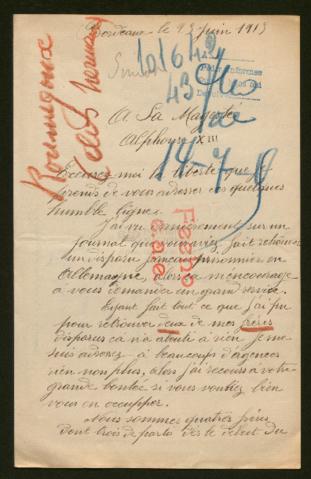 Bordeaux le 23 juin 1915
Roumigoux
clas hermanos
A Sa Majesté
Alphonse XIII
14-7-15
Fecho
Excusez moi la liberté que je
prends de vous adresser ces quelques
humble lignes.
J'ai vu dernièrement sur un
journal que vous aviez fait retrouver
un disparu français prisonnier en
Allemagne, alors sa m'encourage
à vous demander un grand service.
Ayant fait tout ce que j'ai pu
pour retrouver deux de mes frères
disparus ca n'a aboutit à rien je me
suis adressé à beaucoup d'agences
rien non plus, alors j'ai recours a votre
grande bonté si vous vouliez bien
vous en occupper.
Nous sommes quatres frères
dont trois de partis dès le début du